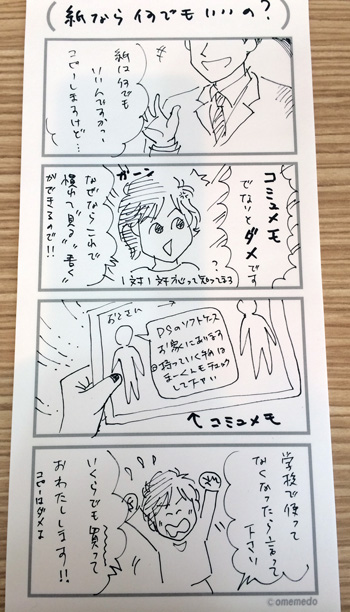 (紙なら何でもいいの?)
紙は何でも
いいんですかっ
コピーしますけど…
コミュメモ
でないとダメです
ガーン
なぜならこれで
横れて"見る""書く"
ができるので!!
?
1対1対応って知ってる?
おとさん
DSのソフトケース
お家にあります
持っていく物は
まーくんもチェック
して下さい
↑コミュメモ
学校で使って
なくなったら言って
下さい
いくらでも買って
おわたしします!!
コピーはダメよ
©omemedo